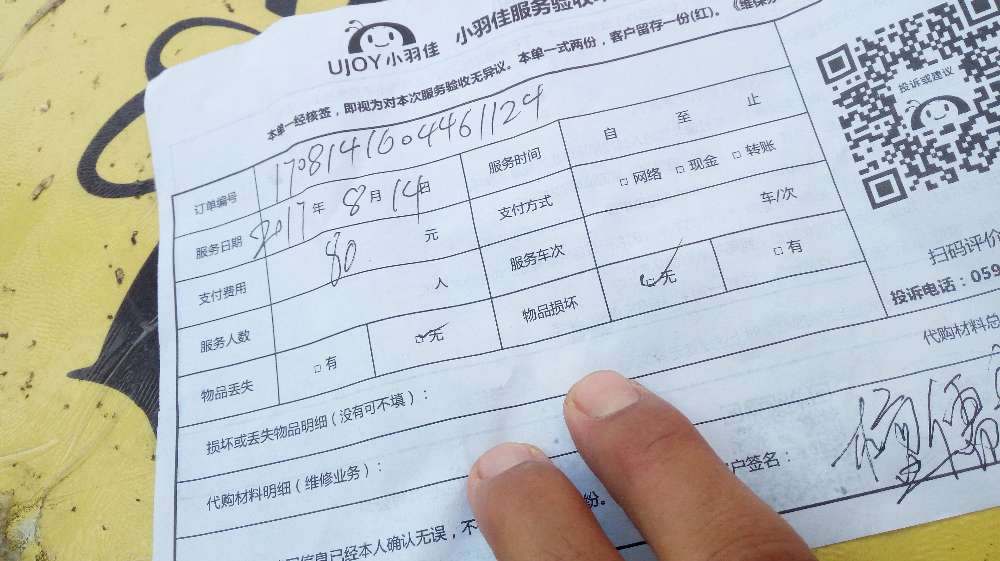 UJOY小羽佳 小羽佳服务验收
本单一经核签，即视为对本次服务验收无异议。本单一式两份，客户留存一份(红)。
投诉或建议
订单编号 1708141604461124
服务日期 2017年 8月 14日 服务时间 自 至 止
支付费用 80 元 支付方式 □网络 □现金 □转账
服务人数 人 服务车次 车/次
物品丢失 □有 ☑无 物品损坏 ☑无 □有
扫码评价
投诉电话：059
损坏或丢失物品明细（没有可不填）：
代购材料明细（维修业务）： 代购材料总
户签名：
信息已经本人确认无误，不 份。